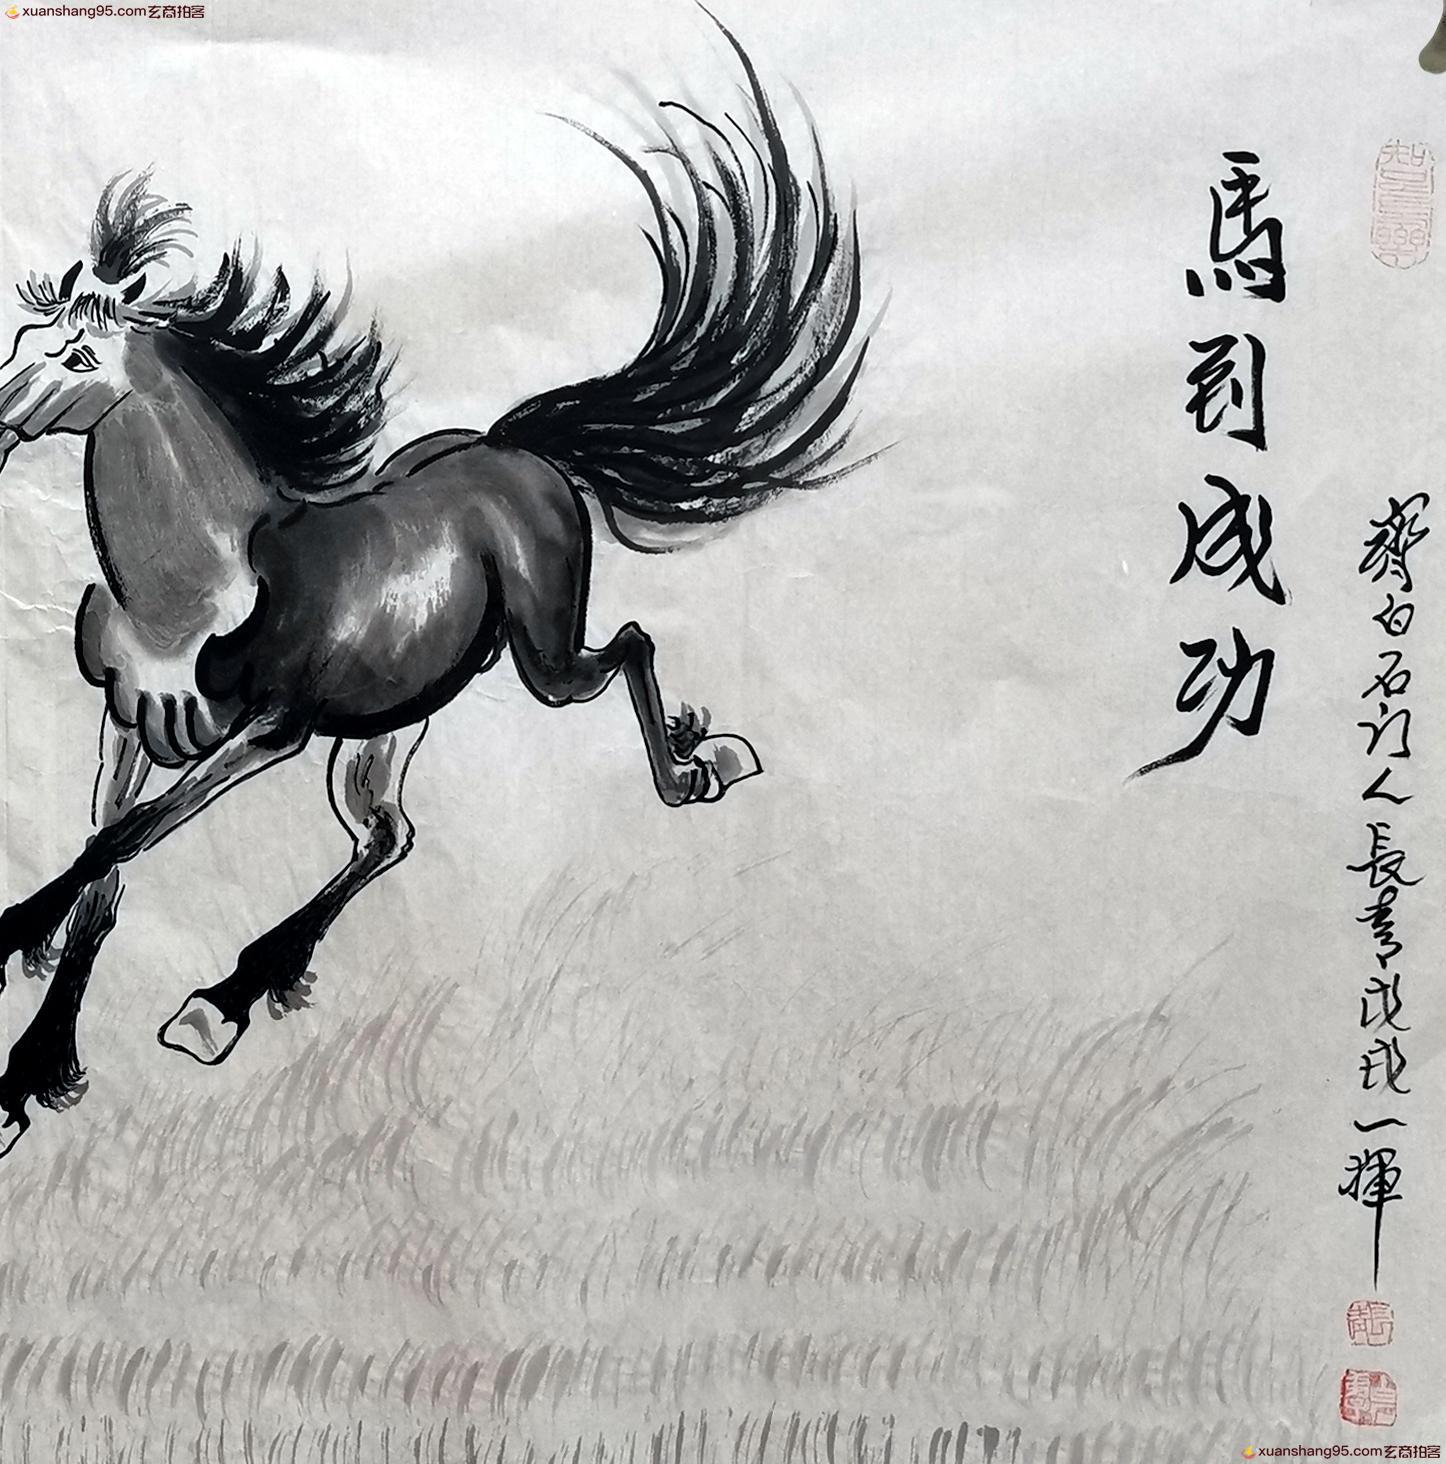 xuanshang95.com玄商拍客
馬到成功
齊白石门人長青戊戌一揮
xuanshang95.com玄商拍客